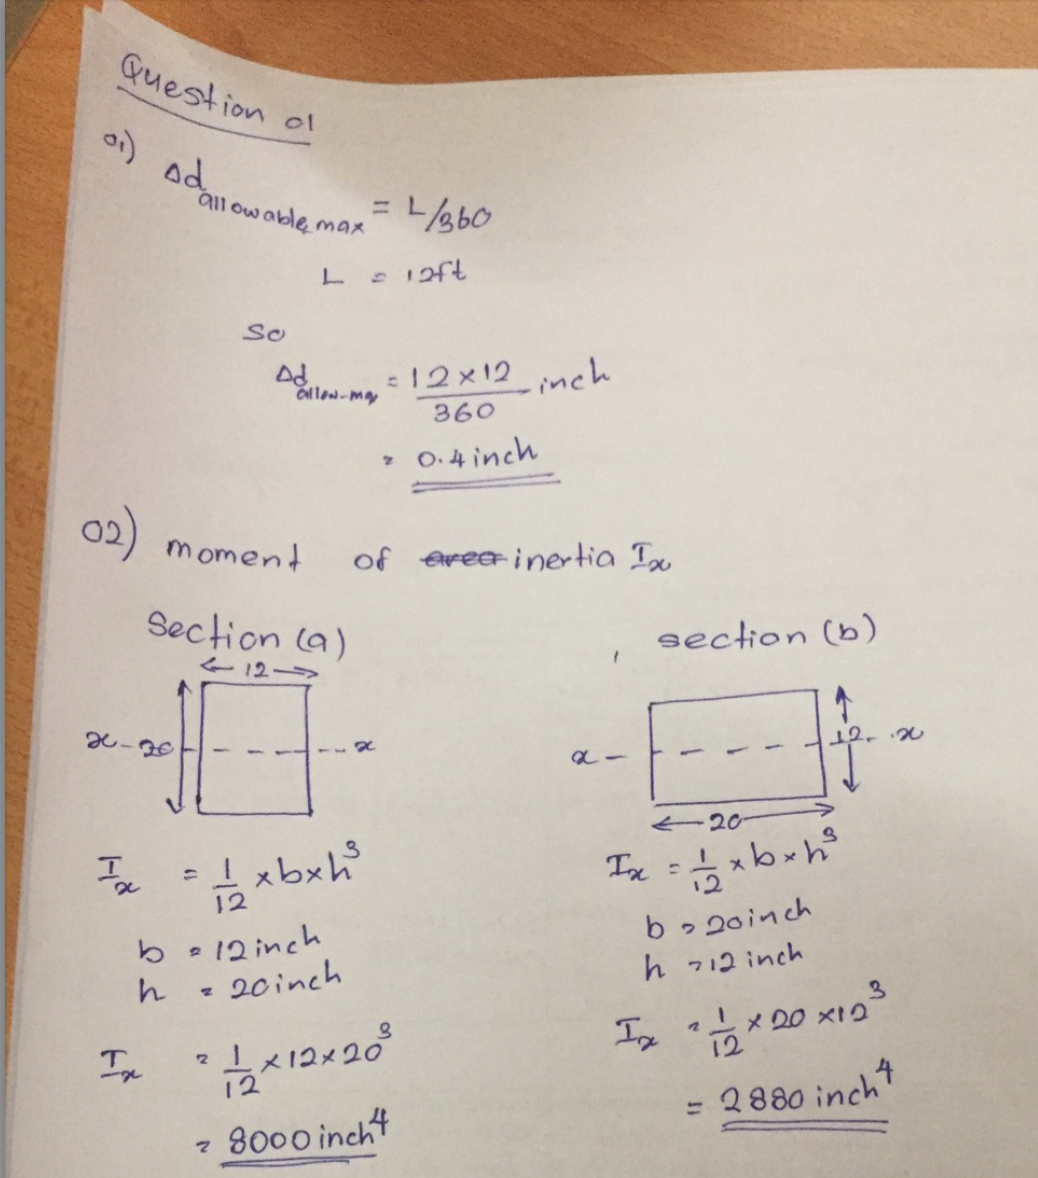 Question 01
01) Δd allowable, max = L/360
L = 12ft
so
Δd allow-max = 12 × 12 / 360 inch
= 0.4 inch
02) moment of area inertia Ix
Section (a)
12
x - 20 - - - - x
Ix = 1/12 × b × h³
b = 12 inch
h = 20 inch
Ix = 1/12 × 12 × 20³
= 8000 inch⁴
section (b)
x - - - - - 12 - x
20
Ix = 1/12 × b × h³
b = 20 inch
h = 12 inch
Ix = 1/12 × 20 × 12³
= 2880 inch⁴